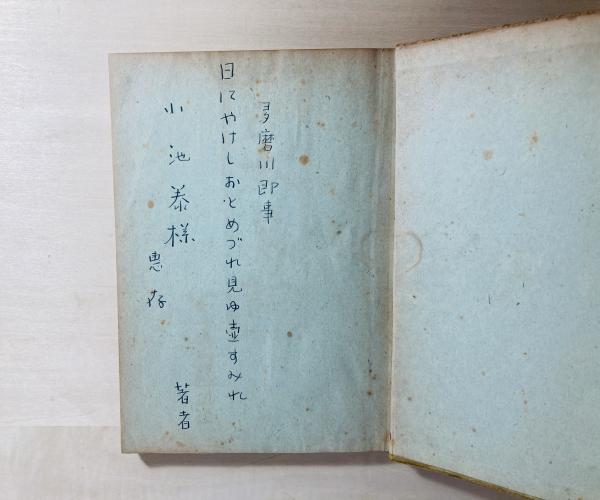 多磨川即事
日にやけしおとめづれ見ゆ壺すみれ
小池泰様
恵存
著者